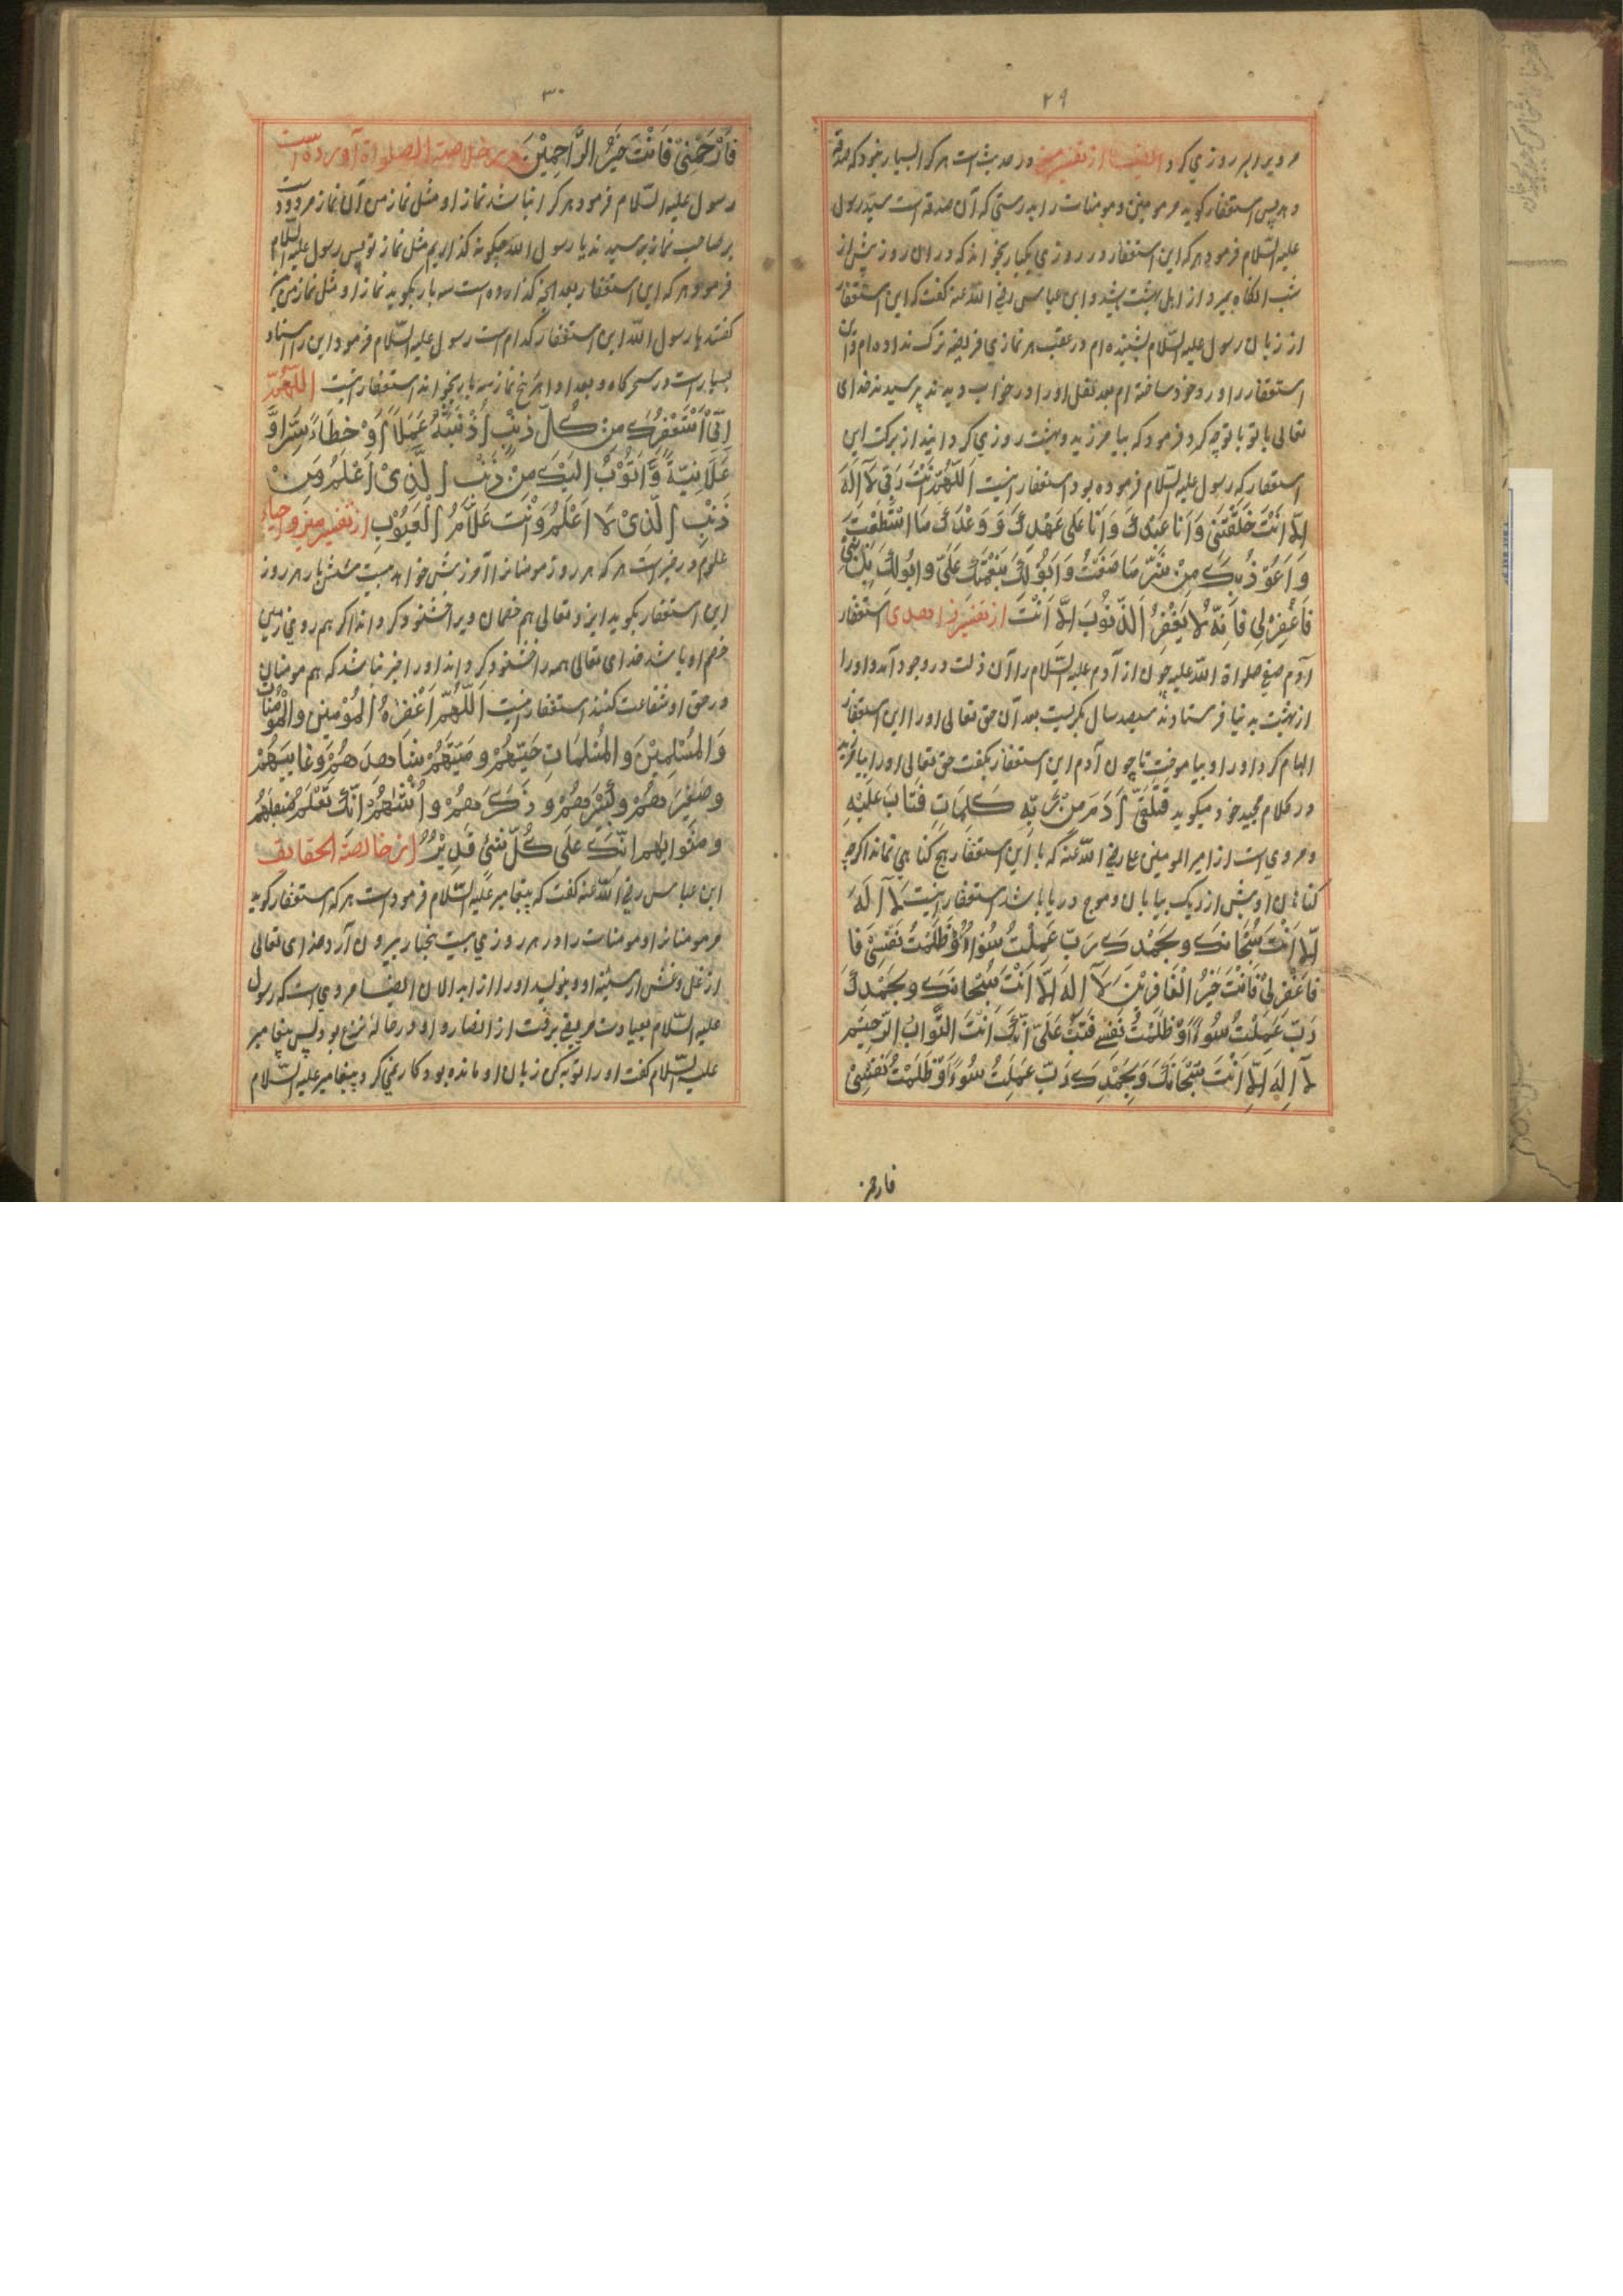 ۲۹
مر ویرا هر روزی کرد ایضا از تفسیر در حدیث است هر کرا بسیار نبود که صدقه
دهد پس استغفار کوید مر مومنین و مومنات را بدرستی که آن صدقه است سید رسول
علیه السّلام فرمود هر که این استغفار در روزی یکبار بخواند که در ان روز پیش از
شب انکاه بمیرد از اهل بهشت باشد و ابن عباس رضی اللّه عنه کفت که این استغفار
از زبان رسول علیه السّلام شنیده ام در عقب هر نمازی فریضه ترک نداده ام و این
استغفار را ورد خود ساخته ام بعد نقل اورا در خواب دیدند پرسیدند خدای
تعالی با تو با تو چه کرد فرمود که بیامرزید و بهشت روزی کردانید از برکت این
استغفار که رسول علیه السّلام فرموده بود استغفار اینست اَللّهُمَّ اَنْتَ رَبّی لَا اِلَهَ
اِلَّا اَنْتَ خَلَقْتَنی وَ اَنَا عَبْدُكَ وَ اَنَا عَلی عَهْدِكَ وَ وَعْدِكَ مَا اسْتَطَعْتُ
وَ اَعُوْذُ بِكَ مِنْ شَرِّ مَا صَنَعْتُ وَ اَبُوْلَكَ بِنِعْمَتِكَ عَلَیَّ و ابُولَكَ بِذَنْبی
فَاغْفِرْ لِی فَاِنَّهُ لَا یَغْفِرُ الذُّنُوبَ اِلَّا اَنْتَ از تفسیر زاهدی استغفار
آدم صفی صلواة اللّه علیه چون از آدم علیه السّلام را آن ذلت در وجود آمد و اورا
از بهشت به نیا فرستادند سیصد سال بکریست بعد آن حق تعالی اورا این استغفار
الهام کرد و اورا بیاموخت تا چون آدم این استغفار بکفت حق تعالی اورا بیامرزید
در کلام مجید خود میکوید فَتَلَقّی آدَمَ مِنْ رَبِّهِ كَلِمَاتٍ فَتَابَ عَلَیْهِ
و مروی است از امیر المومنین علی رضی اللّه عنه که با این استغفار هیچ کناهی نماند اکرچه
کناهان او بیش از ریک بیابان و موج دریا باشد استغفار اینست لَا اِلَهَ
اِلَّا اَنْتَ سُبْحَانَكَ و بِحَمْدِكَ رَبِّ عَمِلْتُ سُوْاءً وَّ ظَلَمْتُ نَفْسِیْ فَا
فَاغْفِرْ لِیْ فَاَنْتَ خَیْرُ الْغَافِرِیْنَ لَا اِلَهَ اِلَّا اَنْتَ سُبْحَانَكَ و بِحَمْدِكَ
رَبِّ عَمِلْتُ سُوءً اَوْ ظَلَمْتُ نَفْسِے فَتُبْ عَلَیَّ اِنَّكَ اَنْتَ التَّوَابُ الرَّحِیْم
لَا اِلَهَ اِلَّا اَنْتَ سُبْحَانَكَ وَ بِحَمْدِكَ رَبِّ عَمِلْتُ سُوْءً وَّ ظَلَمْتُ نَفْسِیْ
فارحمنی
۳۰
فَارْحَمْنِیْ فَاَنْتَ خَیْرُ الرَّاحِمِیْنَ در خلاصة الصلواة آورده است
رسول علیه السّلام فرمود هر کرا نباشد نماز او مثل نماز من آن نماز مردود است
بر صاحب نماز پرسیدند یا رسول اللّه چکونه کذاریم مثل نماز تو پس رسول علیه السّلام
فرمود هر که این استغفار بعد انچه کذارده است سه بار بکوید نماز او مثل نماز من است
کفتند یا رسول اللّه این استغفار کدام است رسول علیه السّلام فرمود این را اسناد
بسیارست در سحر کاه و بعد ادا هر پنج نماز سه بار بخواند استغفار اینست اللّهُمَّ
اِنّی اَسْتَغْفِرُكَ مِنْ كُلِّ ذَنْبٍ اَذْنَبْتُهُ عَمَداً اَوْ خَطَاءً سِرًا وَّ
عَلَانِیَةً وَّ اَتُوْبُ اِلَیْكَ مِنْ ذَنْبِ الَّذِیْ اَعْلَمُ وَ مِنْ
ذَنْبِ الَّذِیْ لَا اَعْلَمُ وَ اَنْتَ عَلَّامُ الْغُیُوْبِ از تفسیر و احیاء
علوم در خبر است هر که هر روز مومنانرا آمرزش خواهد بیست شش بار هر روز
این استغفار بکوید ایزد تعالی هم خصمان ویرا خشنود کرداند اکر هم روی زمین
خصم او باشد خدای تعالی همه را خشنود کرداند اورا خبر نباشد که هم مومنان
در حق او شفاعت کنند استغفار اینست اَللّهُمَّ اغْفِرْهُ الْمُؤْمِنِیْنَ والْمُؤْمِنَاتِ
وَ الْمُسْلِمِیْنَ وَ الْمُسْلِمَاتِ حَیِّهُمْ و مَیِّتَهُمْ شَاهِدَهُمْ وَ غَایِبَهُمْ
و صَغِیْرَهُمْ وَ كَبِیْرَهُمْ و ذَكَرَهُمْ وَ اُنْثَاهُمْ اِنَّكَ تَعْلَمُ
و مَثْوَابَهُم اِنَّكَ عَلَی كُلِّ شَیْءٍ قَدِیْرٌ از خالصة الحقایق
ابن عباس رضی اللّه عنه کفت که پیغامبر علیه السّلام فرموده است هر که استغفار کوید
مر مومنانرا و مومنات را در هر روزی بیست پنجبار بیرون آرد خدای تعالی
از غل و غش از سینه او و بنویسد اورا از ابدالان ایضا مروی است که رسول
علیه السّلام بعیادت مریضی برفت از انصار و او در حالۀ نزع بود پس پیغامبر
علیه السّلام کفت اورا توبه کن زبان او مانده بود کار نمی کرد پیغامبر علیه السّلام